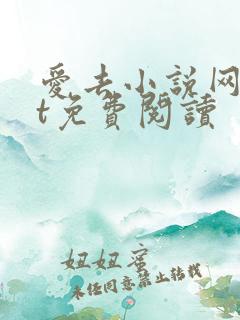 愛去小説网
t免費閱讀
妞妞蜜
未经同意禁止转载